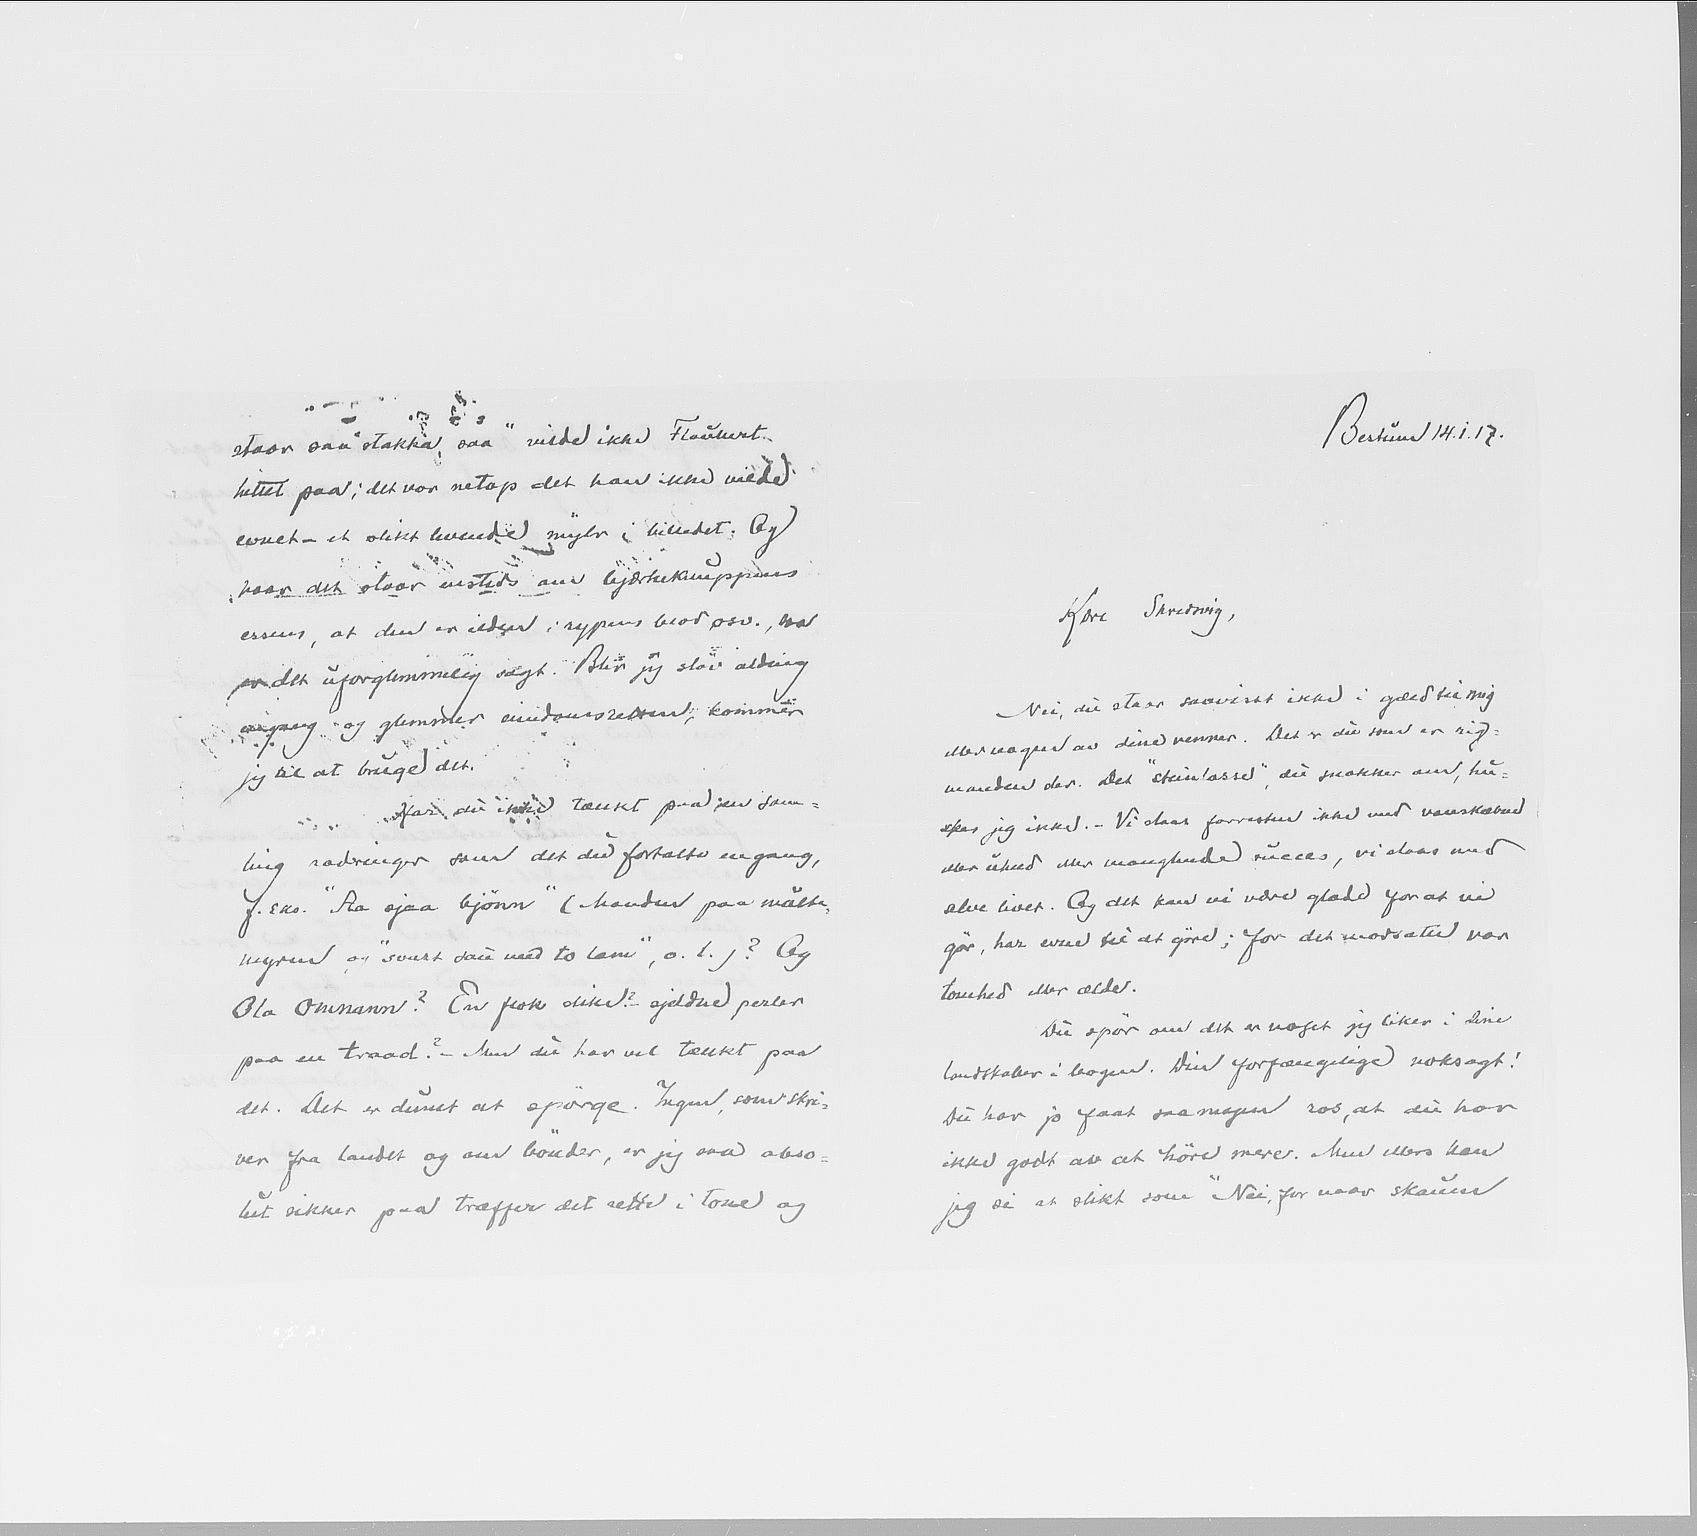 Bestum 14.1.17.
Kære Skredsvig,
Nei, du staar saavisst ikke i gæld til mig
eller nogen av dine venner. Det er du som er rig-
manden der. Det "steinlasset", du snakker om, hu-
sker jeg ikke. – Vi slaas forresten ikke med vanskæbne
eller uheld eller manglende succes, vi slaas med
selve livet. Og det kan vi være glade for at vi
gør, har evne til at gøre; for det modsatte var
tomhed eller ælde.
Du spör om det er noget jeg liker i dine
landskaber i bogen. Din forfængelige noksagt!
Du har jo faat saa megen ros, at du har
ikke godt av at höre mere. Men ellers kan
jeg si at slikt som "Nei, for naar skauen
staar saa stakka, saa" vilde ikke Flaubert
hittet paa; det var netop det han ikke vilde
evnet – et slikt levende mylr i billedet. Og
naar det staar einsteds om bjerkeknuppens
essens, at den er ilden i rypens blod osv., saa
er det uforglemmelig sagt. Blir jeg slöv olding
engang og glemmer eiendomsretten, kommer
jeg til at bruge det.
Har du ikke tænkt paa en sam-
ling raderinger som det du fortalte engang,
f. eks. "Aa sjaa bjönn" (Manden paa multe-
myren og "svart sau med to lam", o. l.)? Og
Ola Ommann? En flok slike? – sjeldne perler
paa en traad? – Men du har vel tænkt paa
det. Det er dumt at spörge. Ingen, som skri-
ver fra landet og om bönder, er jeg saa abso-
lut sikker paa træffer det rette i tone og